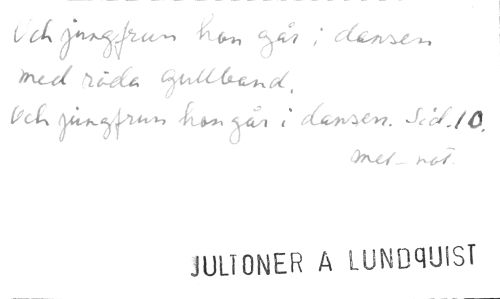 Och jungfrun hon går i dansen
med röda gullband.
Och jungfrun hon går i dansen. Sid. 10.
mel-not.
JULTONER A LUNDQUIST